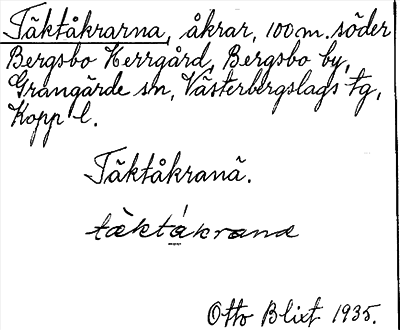 Täktåkrarna, åkrar, 100 m. söder
Bergsbo Herrgård, Bergsbo by,
Grangärde sn, Västerbergslags tg,
Kopp l.
Täktåkranä.
täktåkrana
Otto Blixt 1935.